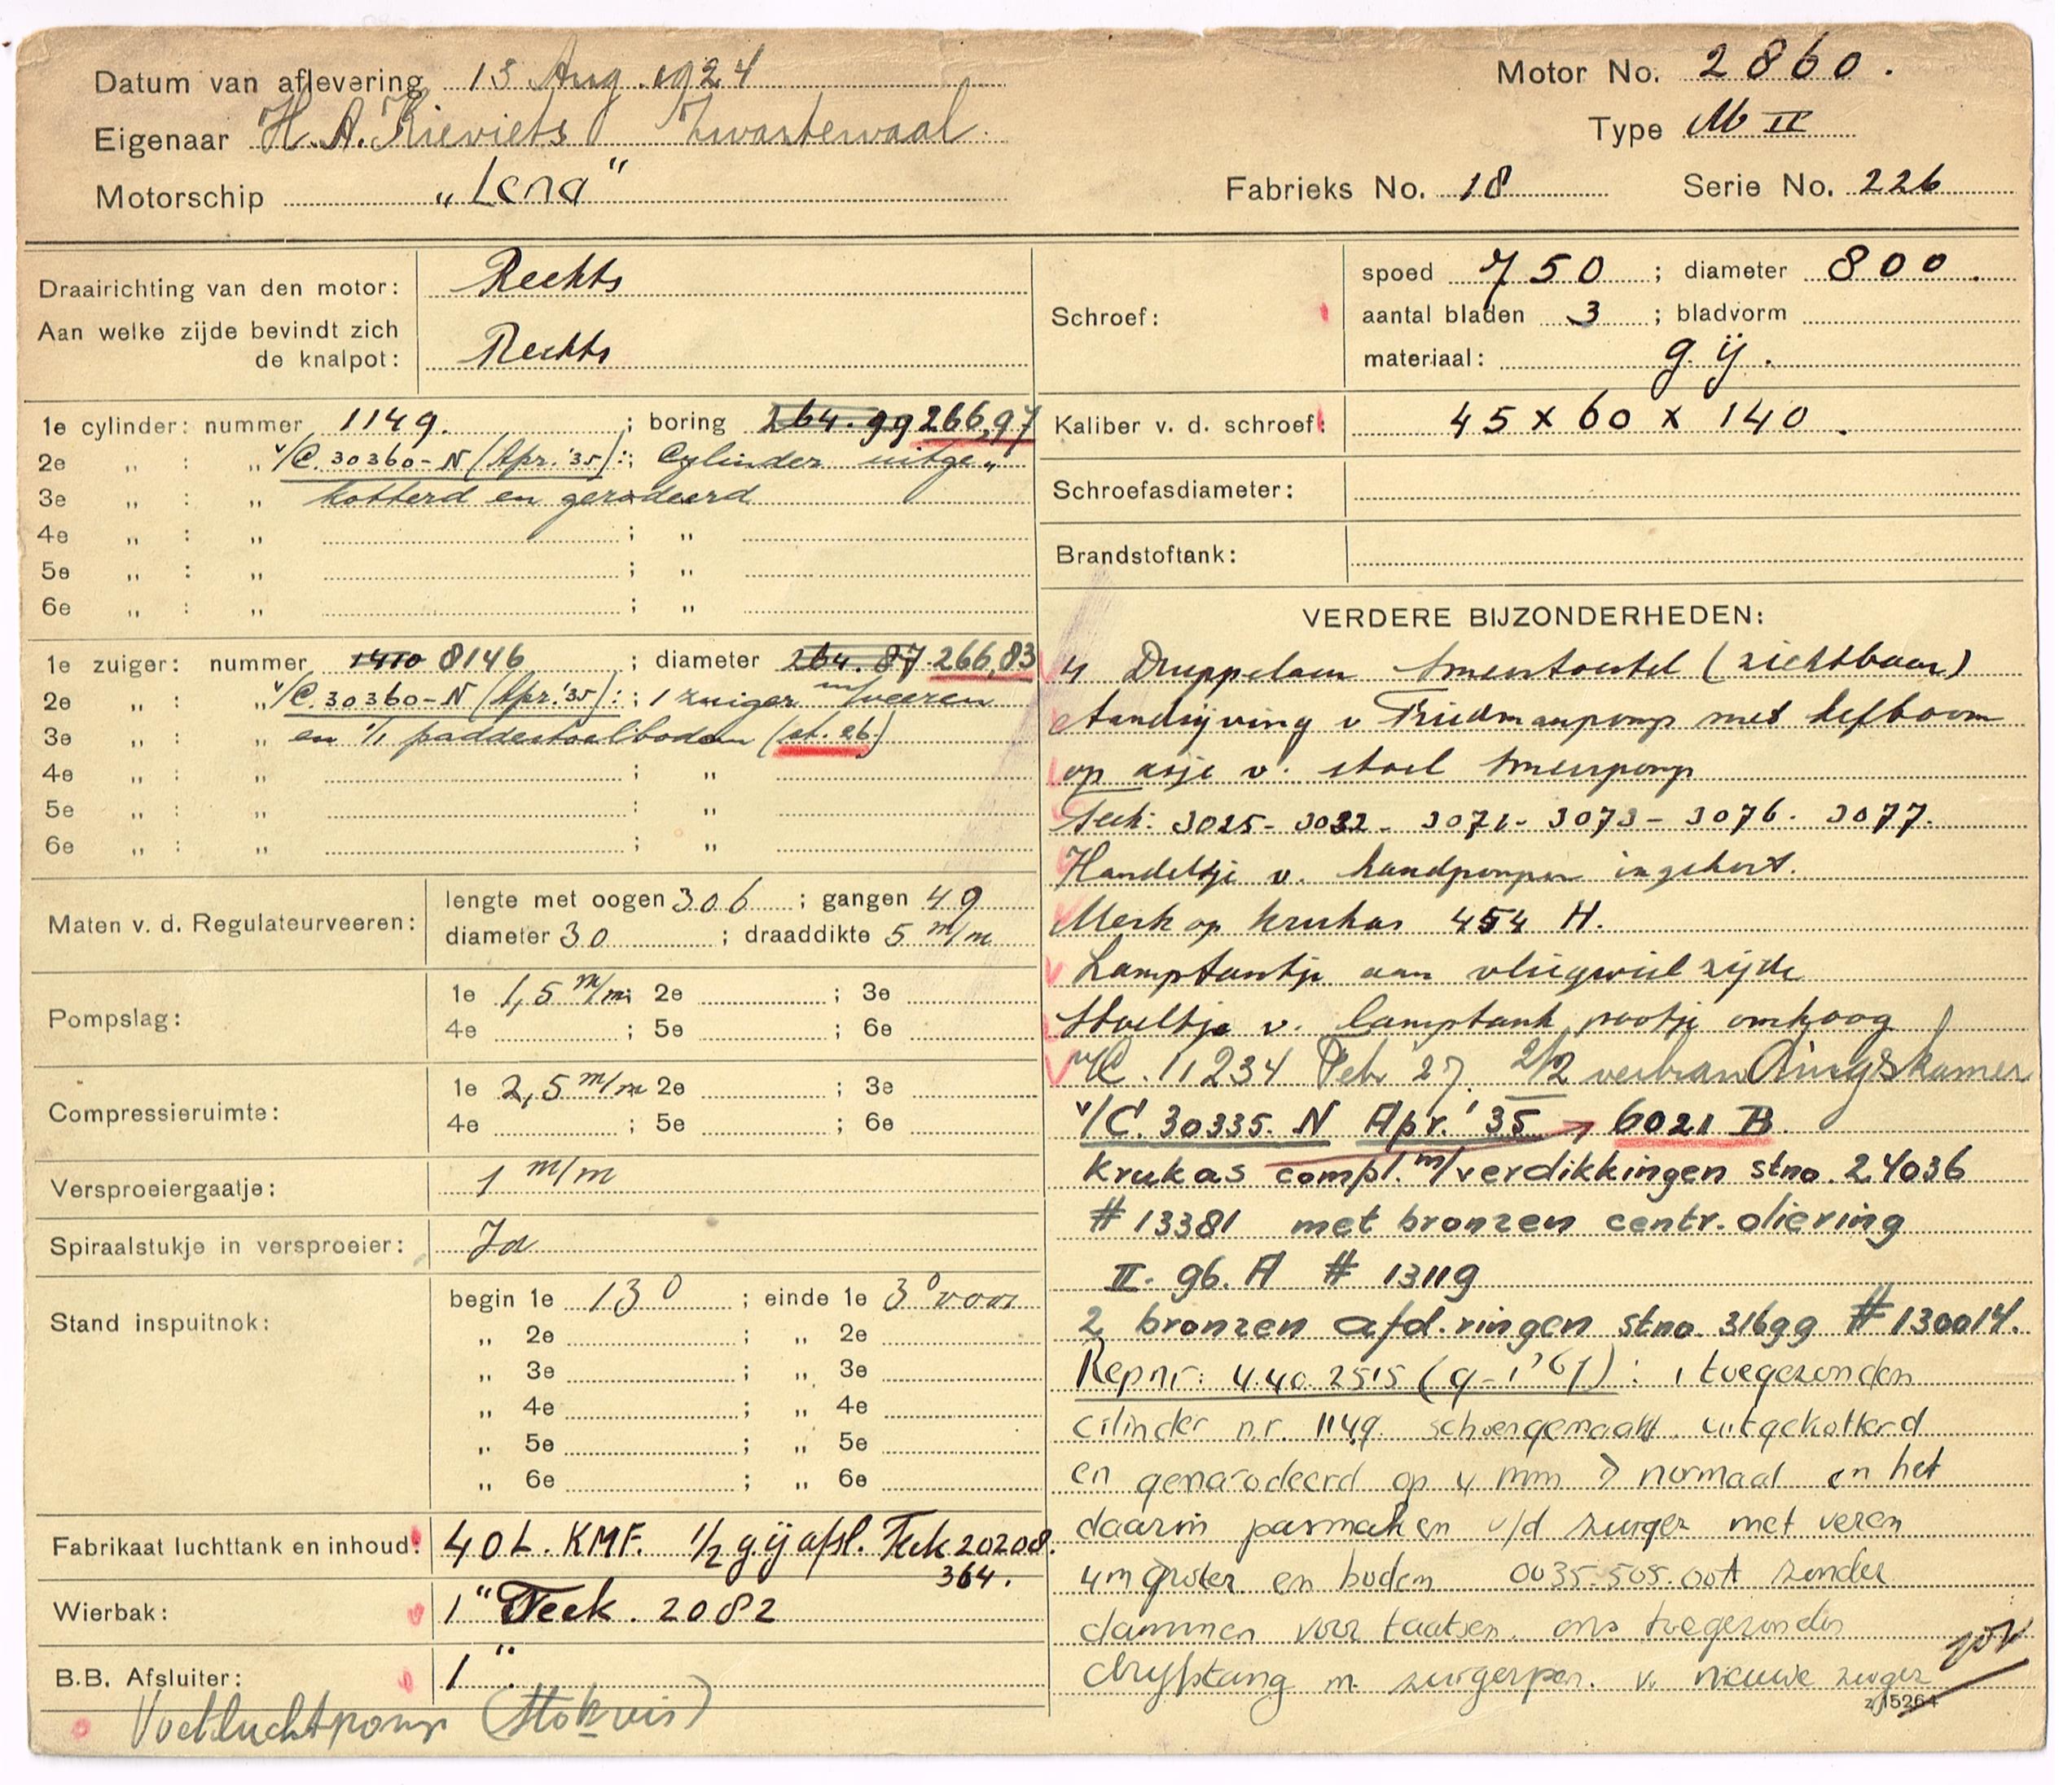 Datum van aflevering 13 Aug. 1924
Eigenaar H. A. Kieviets Zwartewaal
Motorschip „Lena"
Motor No. 2860.
Type M II
Fabrieks No. 18 Serie No. 226
Draairichting van den motor: Rechts
Aan welke zijde bevindt zich
de knalpot: Rechts
1e cylinder: nummer 1149. ; boring 264.99 266,97
2e „ : „ v/C. 30360-N (Apr. '35): ; Cylinder uitge„
3e „ : „ kotterd en gerodeerd
4e „ : „ ; „
5e „ : „ ; „
6e „ : „ ; „
1e zuiger: nummer 1410 8146 ; diameter 264.87 266,83
2e „ : „ v/C. 30360-N (Apr. '35): ; 1 zuiger m/veeren
3e „ : „ en 1/1 paddestoelbodem (st. 26)
4e „ : „ ; „
5e „ : „ ; „
6e „ : „ ; „
Maten v. d. Regulateurveeren: lengte met oogen 306 ; gangen 49
diameter 30 ; draaddikte 5 m/m
Pompslag: 1e 1,5 m/m; 2e ; 3e
4e ; 5e ; 6e
Compressieruimte: 1e 2,5 m/m 2e ; 3e
4e ; 5e ; 6e
Versproeiergaatje: 1 m/m
Spiraalstukje in versproeier: Ja
Stand inspuitnok: begin 1e 13° ; einde 1e 3° voor
„ 2e ; „ 2e
„ 3e ; „ 3e
„ 4e ; „ 4e
„ 5e ; „ 5e
„ 6e ; „ 6e
Fabrikaat luchttank en inhoud: 40 L. KMF. 1/2 g.ij afsl. Teek 20208.
364.
Wierbak: 1" Teek. 2082
B.B. Afsluiter: 1".
Voetluchtpomp (Stokvis)
Schroef: spoed 750 ; diameter 800.
aantal bladen 3 ; bladvorm
materiaal: g.ij.
Kaliber v. d. schroef: 45 x 60 x 140.
Schroefasdiameter:
Brandstoftank:
VERDERE BIJZONDERHEDEN:
4 Druppelaar smeertoestel (zichtbaar)
Aandrijving v Friedmannpomp met hefboom
op asje v. stoel smeerpomp
Teek: 3025 - 3032 - 3071 - 3073 - 3076. 3077.
Handeltje v. handpompen ingekort.
Merk op krukas 454 H.
Lamptankje aan vliegwiel zijde
Stoeltje v. lamptank pootje omhoog
v/C. 11234 Feb '27. 2/2 verbrandingskamer
v/C. 30335. N Apr. '35 → 6021 B.
Krukas compl. m/verdikkingen stno. 24036
# 13381 met bronzen centr. oliering
II. 96. A # 13119
2 bronzen afd. ringen stno. 31699 # 130014.
Repnr: 4.40.2515 (9-1'61): 1 toegezonden
cilinder nr. 1149 schoongemaakt, uitgekotterd
en gehoond op 4 mm > normaal en het
daarin pasmaken v/d zuiger met veren
4 m groter en bodem 0035.505.00A zonder
dammen voor taatsen. ons toegezonden
drijfstang m. zuigerpen. v. nieuwe zuiger
z.15264